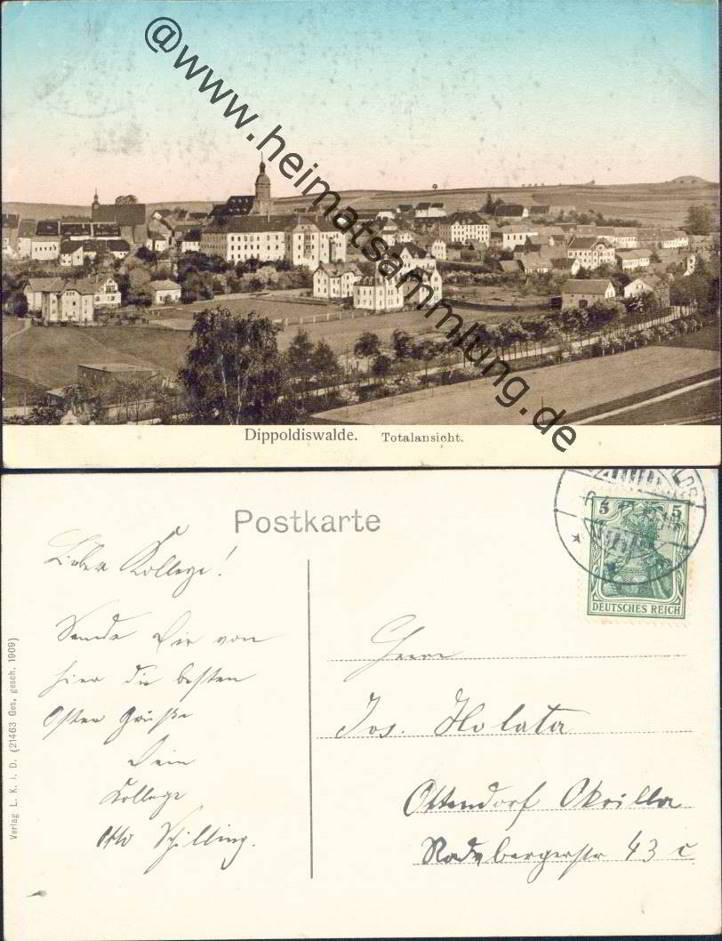 @www.heimatsammlung.de
Dippoldiswalde. Totalansicht.
Postkarte
5 5
DEUTSCHES REICH
Lieber Kollege!
Sende Dir von
hier die besten
Oster Grüße
Dein
Kollege
Otto Schilling.
Herrn
Jos. Holata
Ottendorf Okrilla
Radebergerstr 43 c
Verlag L. K. i. D. (21463 Ges. gesch. 1909)